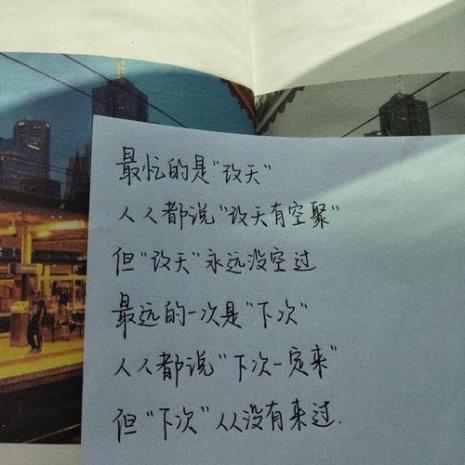 最忙的是"改天"
人人都说"改天有空聚"
但"改天"永远没空过
最远的一次是"下次"
人人都说"下次一定来"
但"下次"从没有来过.